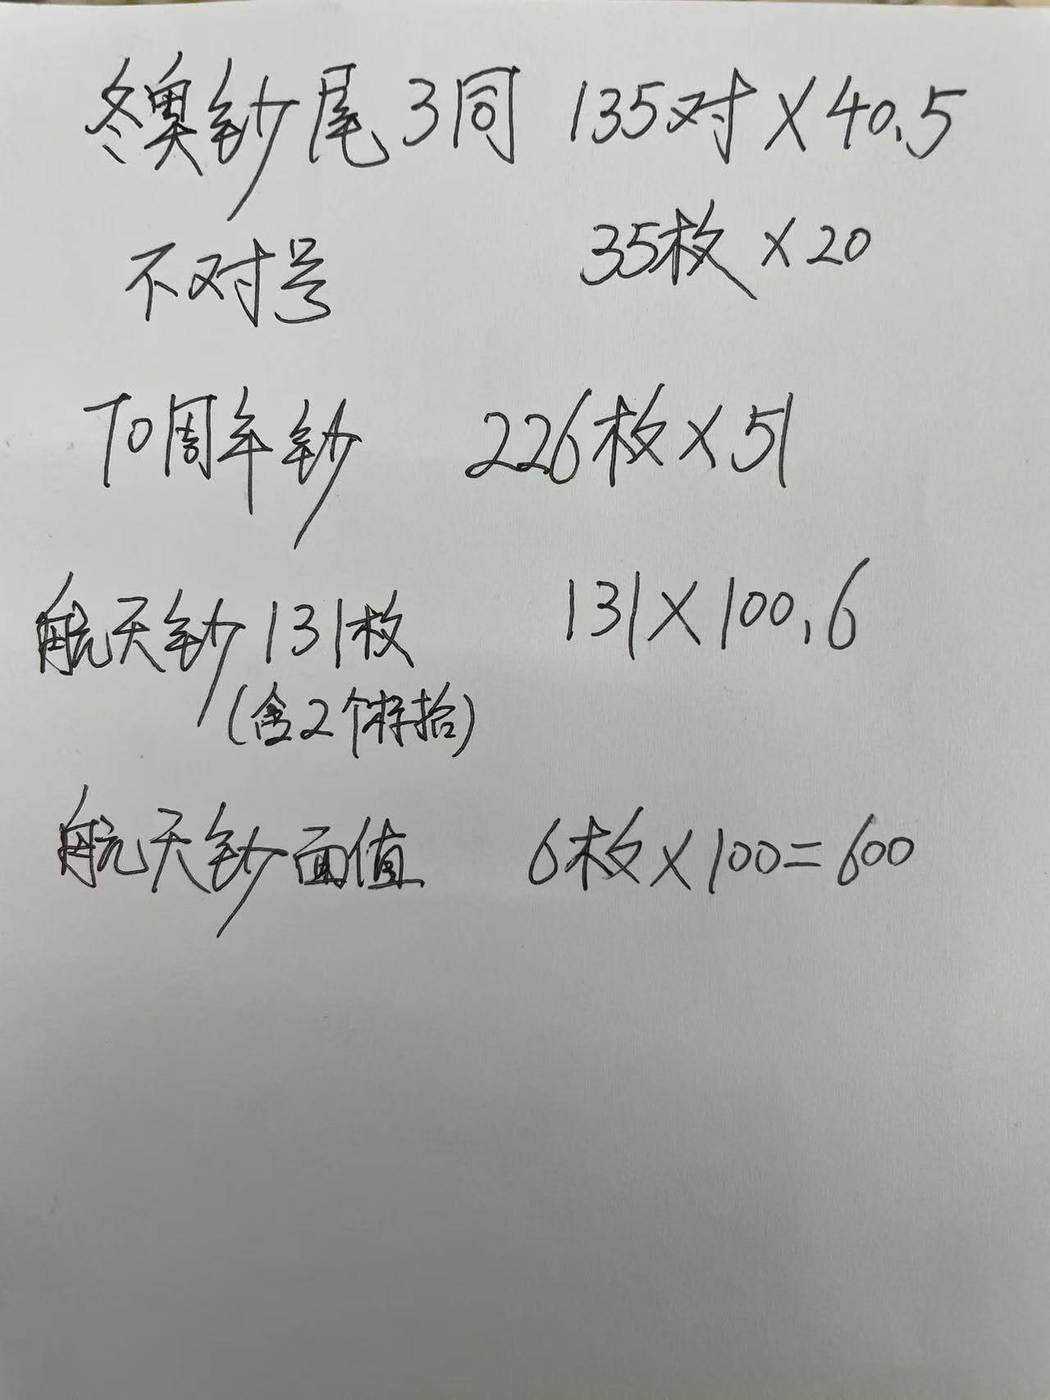 冬奥钞尾3同 135对×40.5
不对号 35枚×20
70周年钞 226枚×51
航天钞131枚 131×100.6
(含2个标拾)
航天钞面值 6枚×100=600